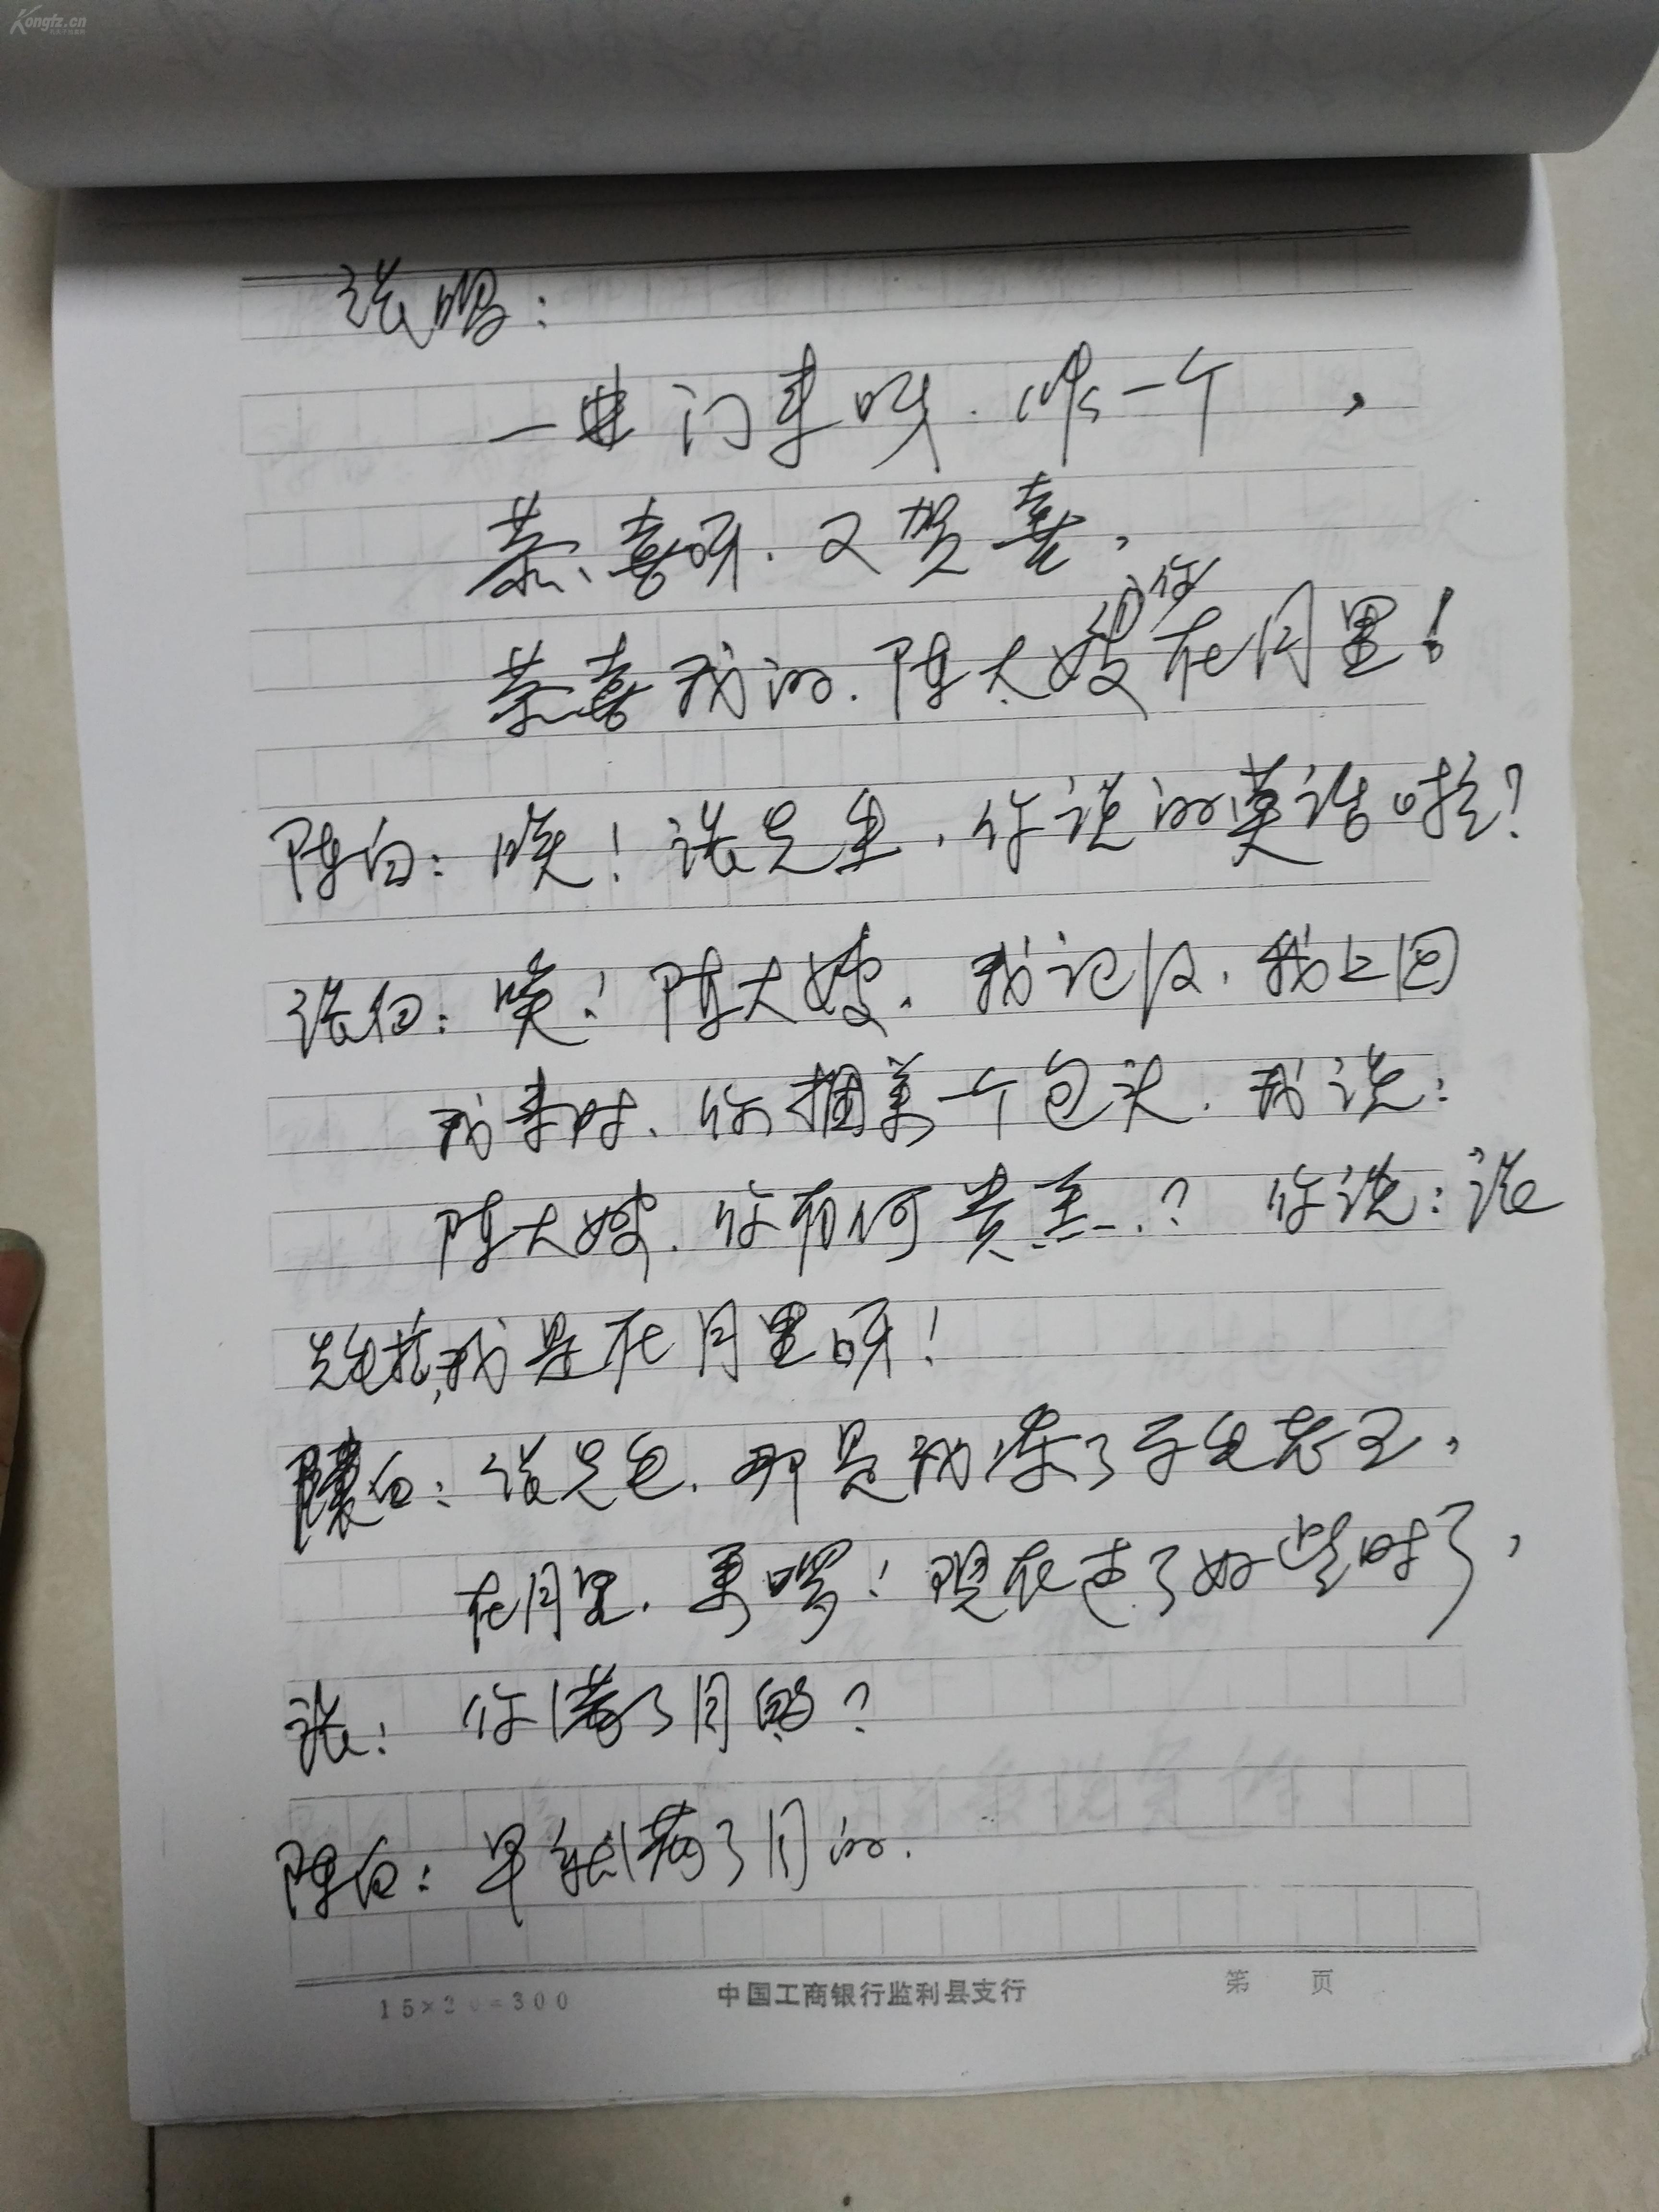 Kongfz.cn
张唱:
一进门来呀.  一个 ,
恭喜呀.又贺喜,
你
恭喜我的.陈大嫂在月里!
陈白:唉!张先生,你说的莫话啦?
张白:唉!陈大嫂.我记得,我上回
我来时、你捆着一个包头.我说:
陈大嫂.你有何贵恙.?你说:张
先生,我是在月里呀!
陈白:张先生.那是我养了 生老 ,
在月里. 啰!现在走了好些时了,
张: 你满了月的?
陈白:早就满了月的.
15×20=300
中国工商银行监利县支行
第 页